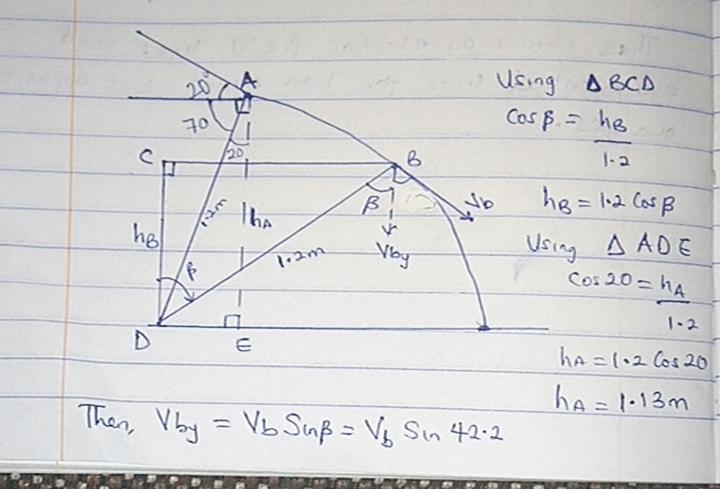 20°
A
70
20
C
B
hB
1.2m
hA
β
Vb
Vby
β
1.2m
D
E
Using Δ BCD
Cos β = hB
1.2
hB = 1.2 Cos β
Using Δ ADE
Cos 20 = hA
1.2
hA = 1.2 Cos 20
hA = 1.13m
Then, Vby = Vb Sinβ = Vb Sin 42.2